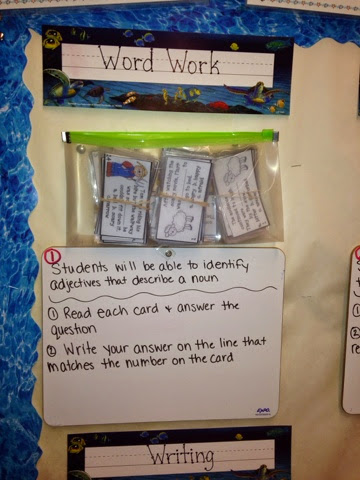 Word Work
①
Students will be able to identify
adjectives that describe a noun
① Read each card + answer the
question
② Write your answer on the line that
matches the number on the card
EXPO
Writing